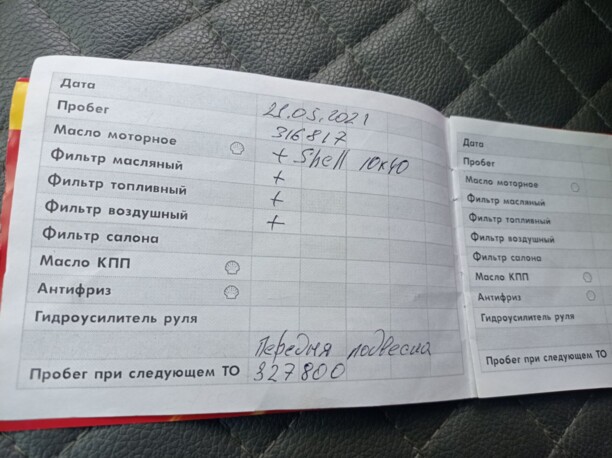 Дата
Пробег 21.05.2021
Масло моторное 316817
Фильтр масляный + Shell 10к40
Фильтр топливный +
Фильтр воздушный +
Фильтр салона +
Масло КПП
Антифриз
Гидроусилитель руля
Передня подвеска
Пробег при следующем ТО 327800
Дата
Пробег
Масло моторное
Фильтр масляный
Фильтр топливный
Фильтр воздушный
Фильтр салона
Масло КПП
Антифриз
Гидроусилитель руля
Пробег при следующем ТО